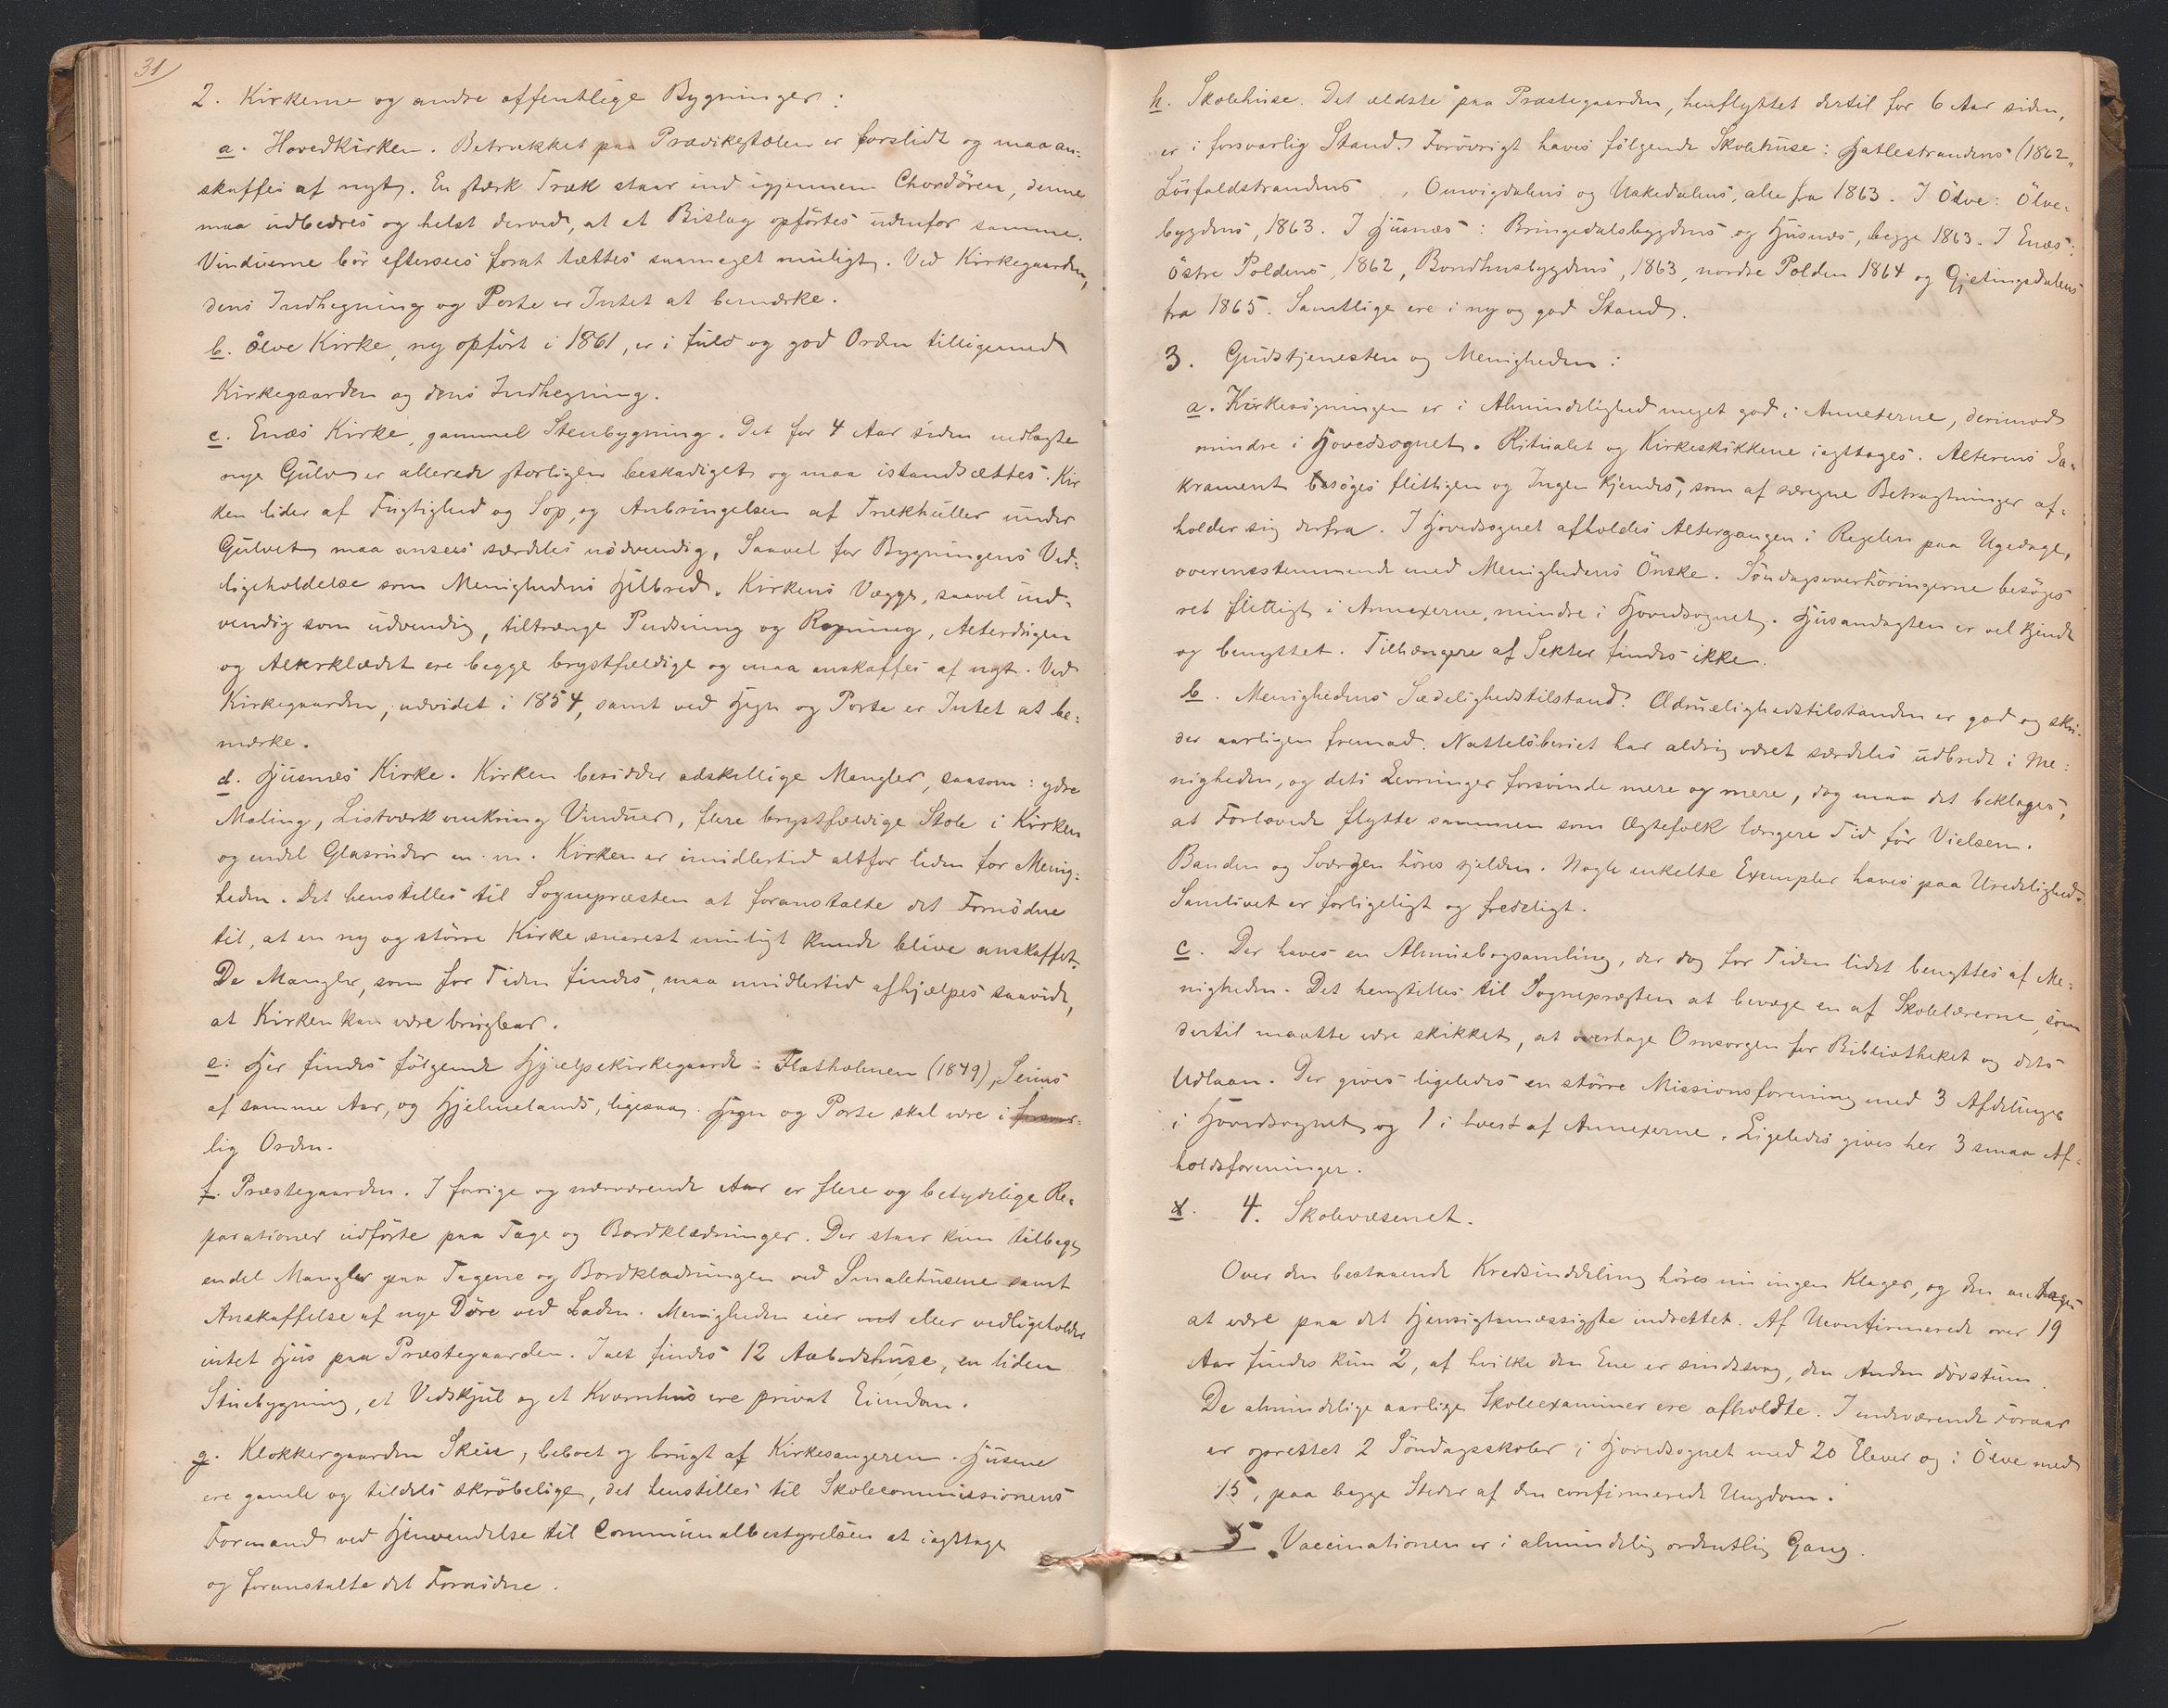 31
2. Kirkerne og andre offentlige Bygninger:
a. Hovedkirken. Betrækket paa Prædikestolen er forslidt og maa an-
skaffes af nyt. En stærk Træk staar ind igjennem Chordören, denne
maa udbedres og helst derved, at et Bislag opförtes udenfor samme.
Vinduerne bör eftersees forat tættes saameget muligt. Ved Kirkegaarden,
dens Indhegning og Porte er Intet at bemærke.
b. Ölve Kirke, ny opfört i 1861, er i fuld og god Orden tilligemed
Kirkegaarden og dens Indhegning.
c. Enæs Kirke, gammel Stenbygning. Det for 4 Aar siden nedlagte
nye Gulv er allerede storligen beskadiget og maa istandsættes. Kir
ken lider af Fugtighed og Sop, og Anbringelsen af Trækhuller under
Gulvet maa ansees særdeles nödvendig, saavel for Bygningens Ved-
ligeholdelse som Menighedens Helbred. Kirkens Vægge, saavel ind-
vendig som udvendig, tiltrænge Pudsning og Rapning, Alterdugen
og Alterklædet ere begge bröstfældige og maa anskaffes af nyt. Ved
Kirkegaarden, udvidet i 1854, samt ved Hegn og Porte er Intet at be-
mærke.
d. Husnæs Kirke. Kirken besidder adskillige Mangler, saasom: ydre
Maling, Listværk omkring Vinduer, flere bröstfældige Stole i Kirken
og endel Glasruder m. m. Kirken er imidlertid altfor liden for Menig-
heden. Det henstilles til Sognepræsten at foranstalte det Fornödne
til, at en ny og större Kirke snarest muligt kunde blive anskaffet.
De Mangler, som for Tiden findes, maa imidlertid afhjælpes saavidt,
at Kirken kan være brugbar.
e. Her findes fölgende Hjælpekirkegaarde: Flatholmen (1849), Seims
af samme Aar, og Hjelmelands, ligesaa. Hegn og Porte skal være i forsvar-
lig Orden.
f. Præstegaarden. I forrige og nærværende Aar er flere og betydelige Re-
parationer udförte paa Tage og Bordklædninger. Der staar kun tilbage
endel Mangler paa Tagene og Bordklædningen ved Smalehusene samt
Anskaffelse af nye Döre ved Laden. Menigheden eier eller vedligeholder
intet Hus paa Præstegaarden. I alt findes 12 Aabodshuse, en liden
Stuebygning, et Vedskjul og et Kværnhus ere privat Eiendom.
g. Klokkergaarden Skeie, beboet og brugt af Kirkesangeren. Husene
ere gamle og tildels skröbelige, det henstilles til Skolecommissionens
Formand ved Henvendelse til Communalbestyrelsen at iagttage
og foranstalte det Fornödne.
h. Skolehuse. Det ældste paa Præstegaarden, henflyttet dertil for 6 Aar siden,
er i forsvarlig Stand. Forövrigt haves fölgende Skolehuse: Hatlestrandens (1862,
Löfaldstrandens, Omvigdalens og Uskedalens, alle fra 1863. I Ölve: Ölve-
bygdens, 1863. I Husnæs: Bringedalsbygdens og Husnæs, begge 1863. I Enæs:
Östre Poldens, 1862, Bondhusbygdens, 1863, nordre Polden 1864 og Gjetingsdalens
fra 1865. Samtlige ere i ny og god Stand.
3. Gudstjenesten og Menigheden:
a. Kirkesögningen er i Almindelighed meget god i Annexerne, derimod
mindre i Hovedsognet. Ritualet og Kirkeskikkene iagttages. Alterens Sa-
krament besöges flittigen og Ingen kjendes, som af særegne Betragtninger af-
holder sig derfra. I Hovedsognet afholdes Altergangen i Regelen paa Ugedage,
overensstemmende med Menighedens Önske. Söndagsoverhöringerne besöges
ret flittigt i Annexerne, mindre i Hovedsognet. Husandagten er vel kjendt
og benyttet. Tilhængere af Sekter findes ikke.
b. Menighedens Sædelighedstilstand. Ædruelighedstilstanden er god og skri-
der aarligen fremad. Natteløberiet har aldrig været særdeles udbredt i Me-
nigheden, og dets Levninger forsvinde mere og mere, dog maa det beklages,
at Forlovede flytte sammen som Ægtefolk længere Tid för Vielsen.
Banden og Sværgen höres sjelden. Nogle enkelte Exempler haves paa Uredelighed.
Samlivet er forligeligt og fredeligt.
c. Der haves en Almuebogsamling, der dog for Tiden lidet benyttes af Me-
nigheden. Det henstilles til Sognepræsten at bevæge en af Skolelærerne, som
dertil maatte være skikket, at overtage Omsorgen for Bibliotheket og dets
Udlaan. Der gives ligeledes en större Missionsforening med 3 Afdelinger
i Hovedsognet og 1 i hvert af Annexerne. Ligeledes gives her 3 smaa Af-
holdsforeninger.
d. 4. Skolevæsenet.
Over den bestaaende Kredsinddeling höres nu ingen Klager, og den antages
at være paa det Hensigtsmæssigste indrettet. Af Uconfirmerede over 19
Aar findes kun 2, af hvilke den Ene er sindssvag, den Anden dövstum.
De almindelige aarlige Skoleexaminer ere afholdte. I indeværende Foraar
er oprettet 2 Söndagsskoler i Hovedsognet med 20 Elever og i Ölve med
15, paa begge Steder af den confirmerede Ungdom.
5. Vaccinationen er i almindelig ordentlig Gang.